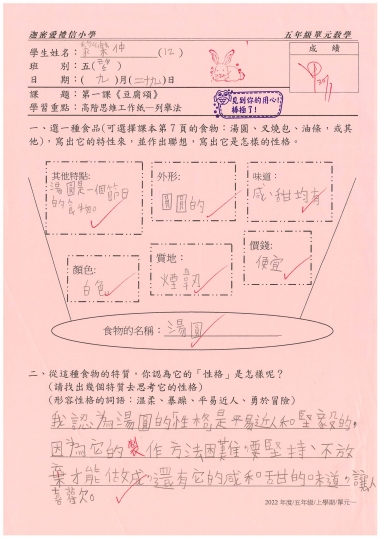 迦密愛禮信小學
五年級單元教學
學生姓名：
(12)
成 績
班 別：五( )
日 期：(九)月(二十九)日
課 題：第一課《豆腐頌》
學習重點：高階思維工作紙—列舉法
見到你的用心!
棒極了!
一、選一種食品(可選擇課本第7頁的食物：湯圓、叉燒包、油條，或其
他)，寫出它的特性來，並作出聯想，寫出它是怎樣的性格。
其他特點:
湯圓是一個節日
的食物。
外形:
圓圓的
味道:
咸、甜均有
顏色:
白色
質地:
煙韌
價錢:
便宜
食物的名稱：湯圓
二、從這種食物的特質，你認為它的「性格」是怎樣呢？
(請找出幾個特質去思考它的性格)
(形容性格的詞語：溫柔、暴躁、平易近人、勇於冒險)
我認為湯圓的性格是平易近人和堅毅的，
因為它的製作方法困難，要堅持、不放
棄才能做成，還有它的咸和甜的味道，讓人
喜歡。
2022年度/五年級/上學期/單元一